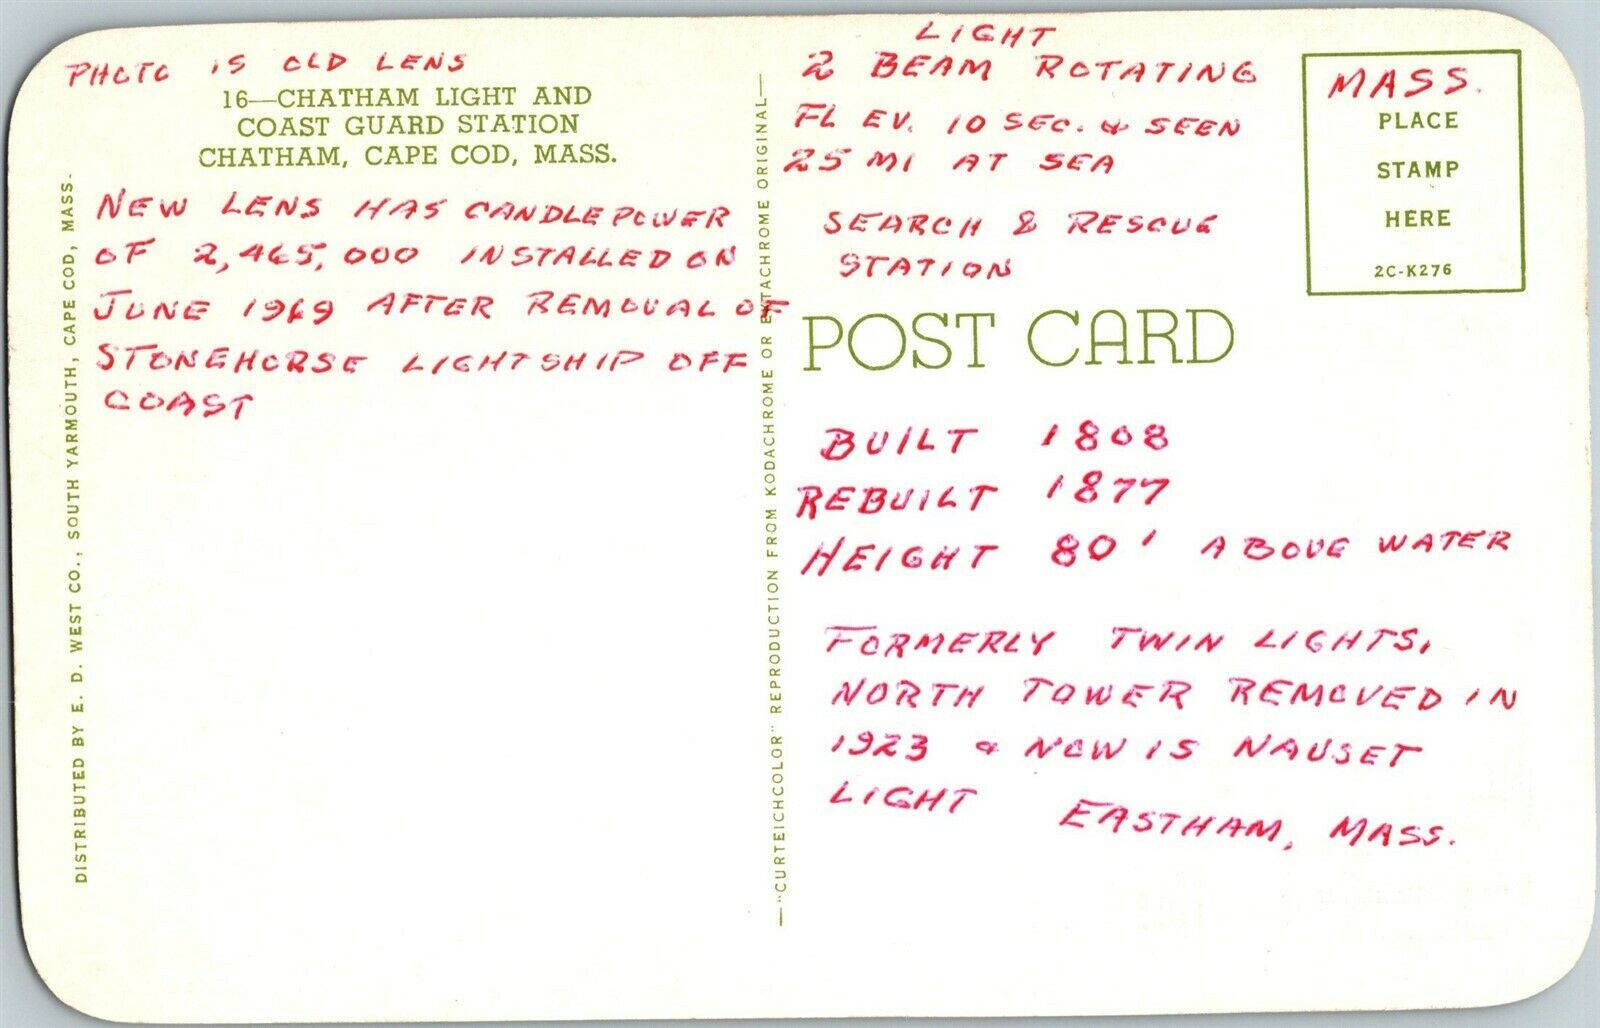 PHOTO IS OLD LENS
16—CHATHAM LIGHT AND
COAST GUARD STATION
CHATHAM, CAPE COD, MASS.
NEW LENS HAS CANDLEPOWER
OF 2,465,000 INSTALLED ON
JUNE 1969 AFTER REMOVAL OF
STONEHORSE LIGHTSHIP OFF
COAST
DISTRIBUTED BY E. D. WEST CO., SOUTH YARMOUTH, CAPE COD, MASS.
—"CURTEICHCOLOR" REPRODUCTION FROM KODACHROME OR EKTACHROME ORIGINAL—
LIGHT
2 BEAM ROTATING
FL EV. 10 SEC. & SEEN
25 MI AT SEA
SEARCH & RESCUE
STATION
MASS.
PLACE
STAMP
HERE
2C-K276
POST CARD
BUILT 1808
REBUILT 1877
HEIGHT 80' ABOVE WATER
FORMERLY TWIN LIGHTS,
NORTH TOWER REMOVED IN
1923 & NOW IS NAUSET
LIGHT EASTHAM, MASS.